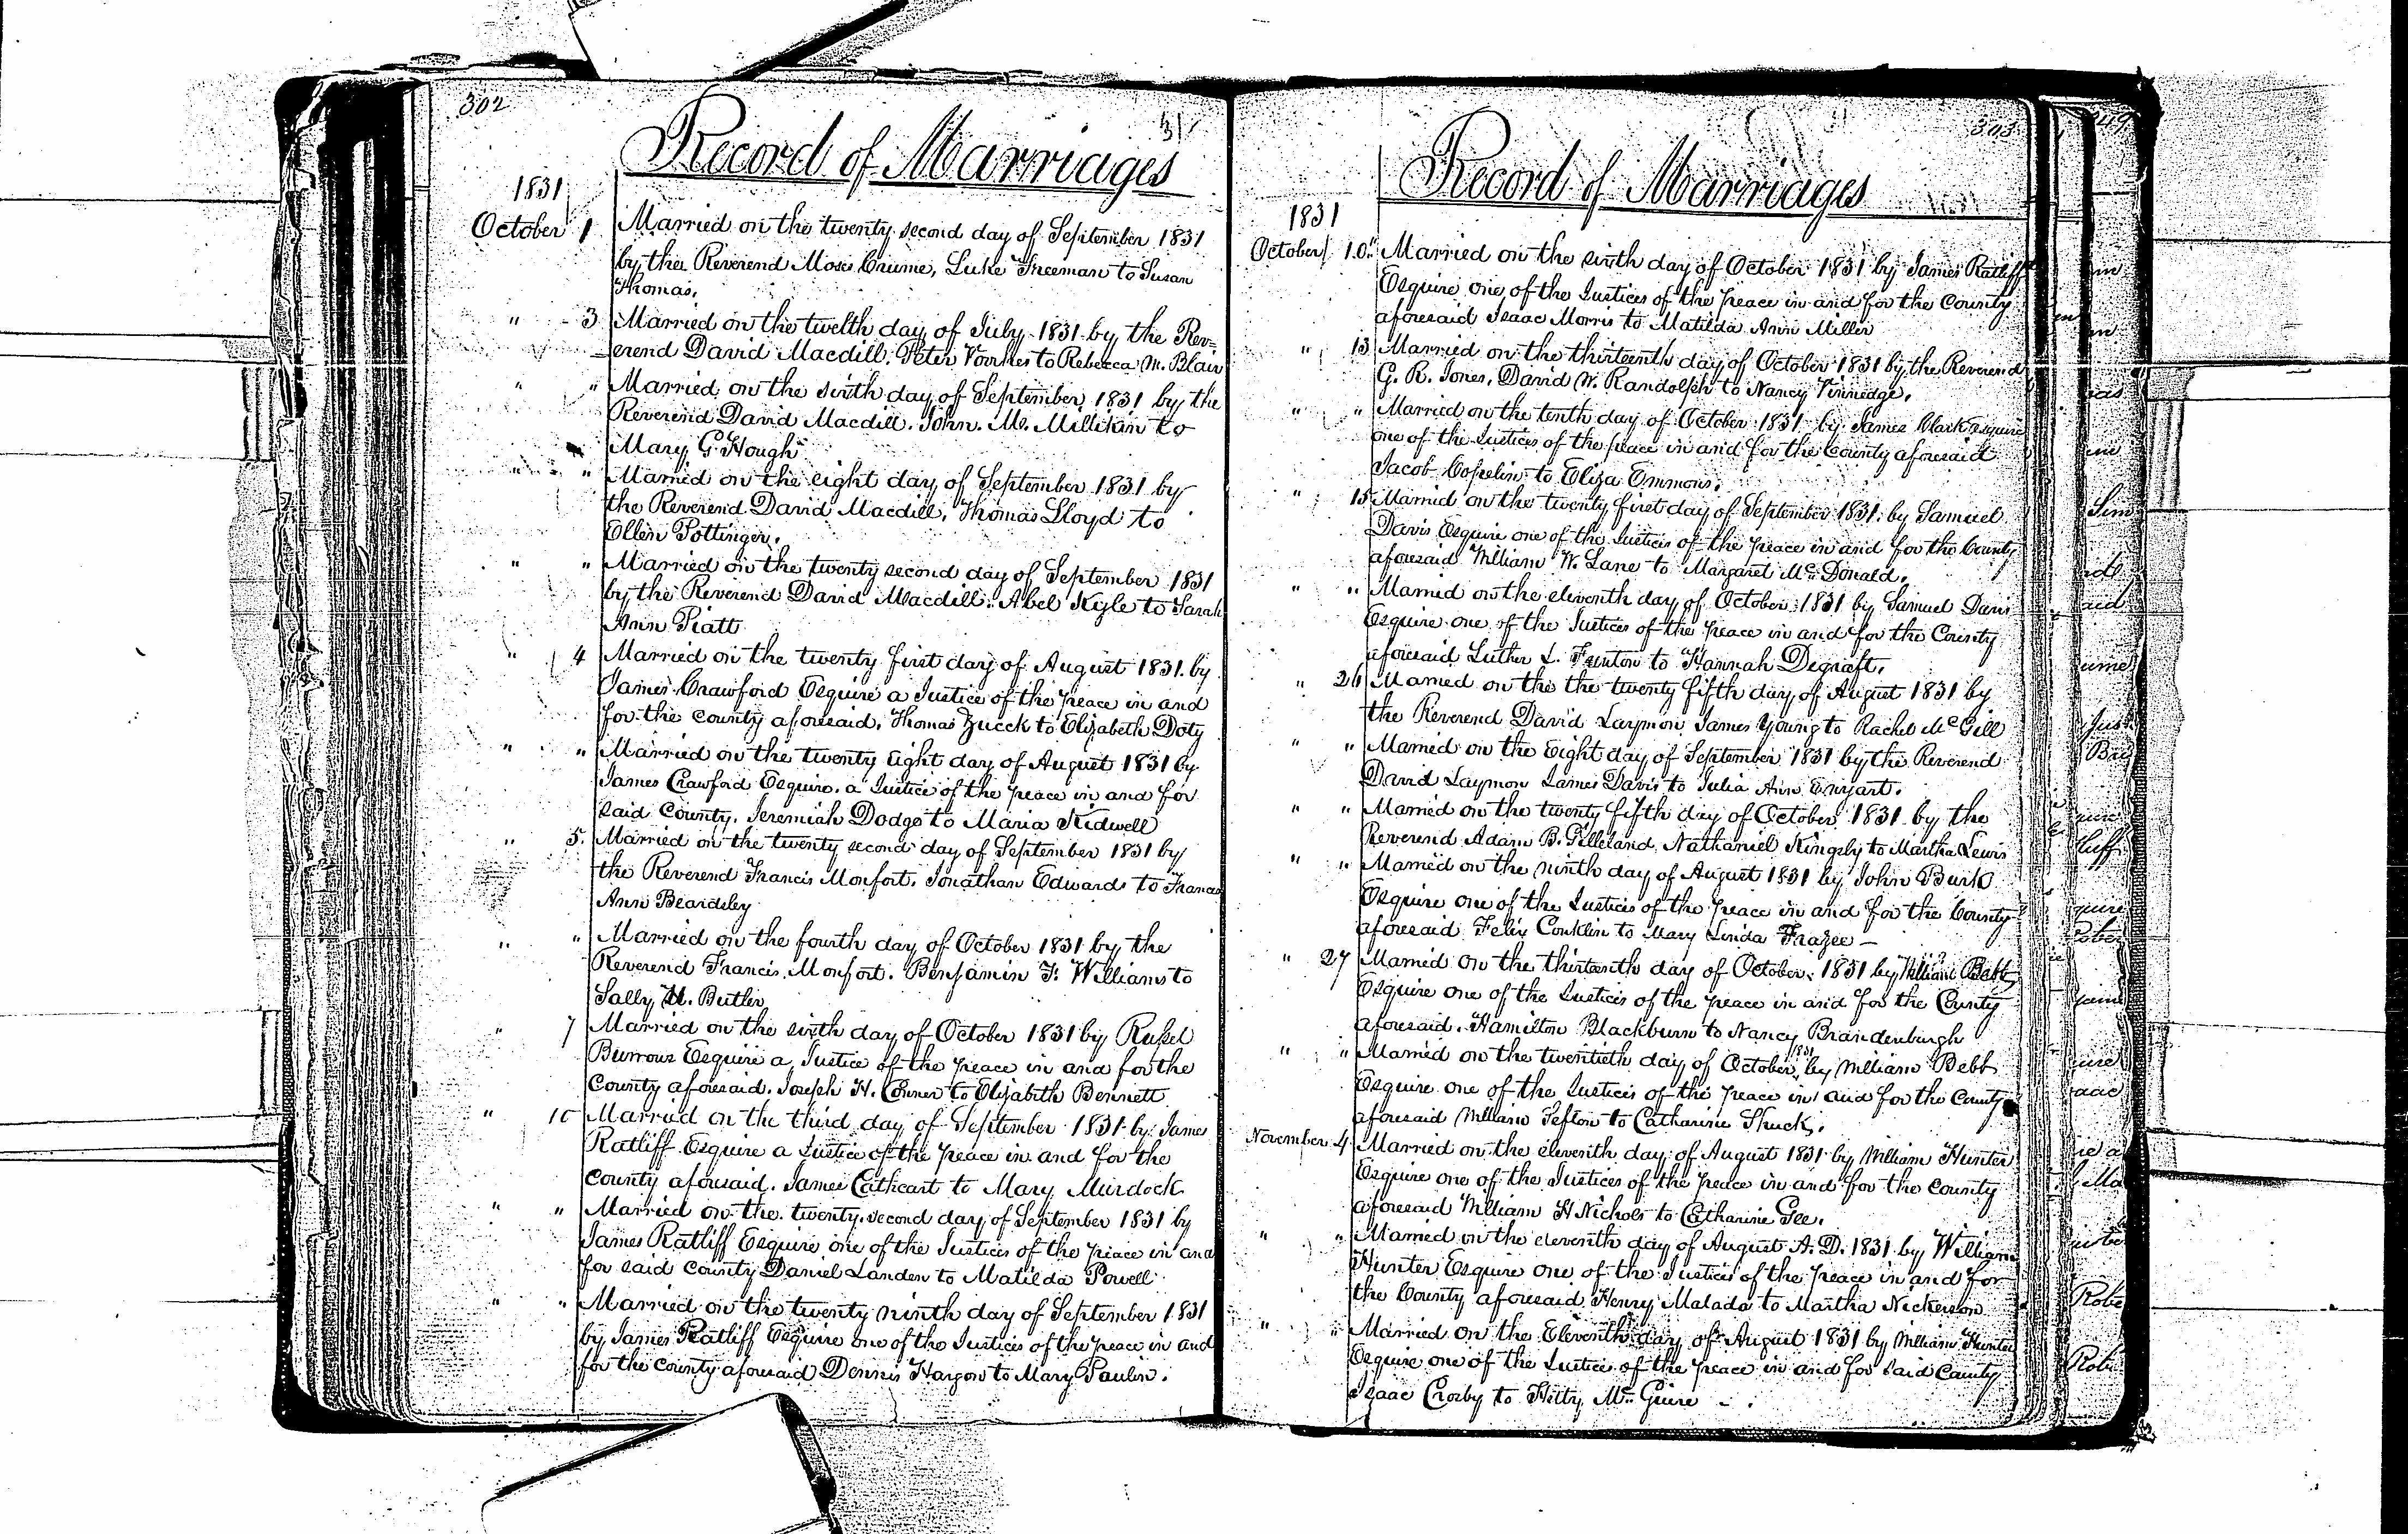 302
31
Record of Marriages
1831
October 1 Married on the twenty second day of September 1831
by the Reverend Moses Crume, Luke Freeman to Susan
Thomas.
" 3 Married on the twelth day of July 1831 by the Rev=
erend David Macdill. Peter Voorhes to Rebecca M. Blair
" " Married on the sixth day of September 1831 by the
Reverend David Macdill. John. M. Millikin to
Mary G Hough
" " Married on the eight day of September 1831 by
the Reverend David Macdill, Thomas Lloyd to
Ellen Pottinger.
" " Married on the twenty second day of September 1831
by the Reverend David Macdill. Abel Kyle to Sarah
Ann Piatt
" 4 Married on the twenty first day of August 1831 by
James Crawford Esquire a Justice of the peace in and
for the county aforesaid. Thomas Zucck to Elizabeth Doty
" " Married on the twenty eight day of August 1831 by
James Crawford Esquire. a Justice of the peace in and for
said County. Jeremiah Dodge to Maria Kidwell
" 5. Married on the twenty second day of September 1831 by
the Reverend Francis Monfort. Jonathan Edwards to Frances
Ann Beardsley
" " Married on the fourth day of October 1831 by the
Reverend Francis Monfort. Benjamin F. Williams to
Sally M. Butler
" 7 Married on the sixth day of October 1831 by Russel
Burrows Esquire a Justice of the peace in and for the
County aforesaid. Joseph H. Conner to Elizabeth Bennett
" 10 Married on the third day of September 1831 by James
Ratliff Esquire a Justice of the peace in and for the
County aforesaid. James Cathcart to Mary Murdock
" " Married on the twenty second day of September 1831 by
James Ratliff Esquire one of the Justices of the peace in and
for said County Daniel Landen to Matilda Powell
" " Married on the twenty ninth day of September 1831
by James Ratliff Esquire one of the Justices of the peace in and
for the county aforesaid Dennis Hargon to Mary Paulin.
303
Record of Marriages
1831
October 10" Married on the sixth day of October 1831 by James Ratliff
Esquire one of the Justices of the peace in and for the County
aforesaid Isaac Morris to Matilda Ann Miller
" 13 Married on the thirteenth day of October 1831 by the Reverend
G. R. Jones, David W. Randolph to Nancy Vinnedge.
" " Married on the tenth day of October 1831 by James Clark Esquire
one of the Justices of the peace in and for the County aforesaid
Jacob Cosselin to Eliza Emmons.
" 15 Married on the twenty first day of September 1831 by Samuel
Davis Esquire one of the Justices of the peace in and for the County
aforesaid William W. Lane to Margaret Mc Donald.
" " Married on the eleventh day of October 1831 by Samuel Davis
Esquire one of the Justices of the peace in and for the County
aforesaid Luther L. Fenton to Hannah Degraft.
" 26 Married on the the twenty fifth day of August 1831 by
the Reverend David Laymon James Young to Rachel Mc Gill
" " Married on the Eight day of September 1831 by the Reverend
David Laymon James Davis to Julia Ann Enyart.
" " Married on the twenty fifth day of October 1831 by the
Reverend Adam B. Gilleland, Nathaniel Kingsly to Martha Lewis
" " Married on the ninth day of August 1831 by John Burk
Esquire one of the Justices of the peace in and for the County
aforesaid Felix Conklin to Mary Linda Frazee —
" 27 Married on the thirteenth day of October 1831 by William Bebb
Esquire one of the Justices of the peace in and for the County
aforesaid. Hamilton Blackburn to Nancy Brandenburgh
" " Married on the twentieth day of October 1831 by William Bebb
Esquire one of the Justices of the peace in and for the County
aforesaid William Sefton to Catharine Shuck.
November 4 Married on the eleventh day of August 1831 by William Hunter
Esquire one of the Justices of the peace in and for the County
aforesaid William H Nichols to Catharine Gee.
" " Married on the eleventh day of August A. D. 1831 by William
Hunter Esquire one of the Justices of the peace in and for
the County aforesaid Henry Malada to Martha Nickerson
" " Married on the Eleventh day of August 1831 by William Hunter
Esquire one of the Justices of the peace in and for said County
Isaac Crosby to Hetty Mc Guire